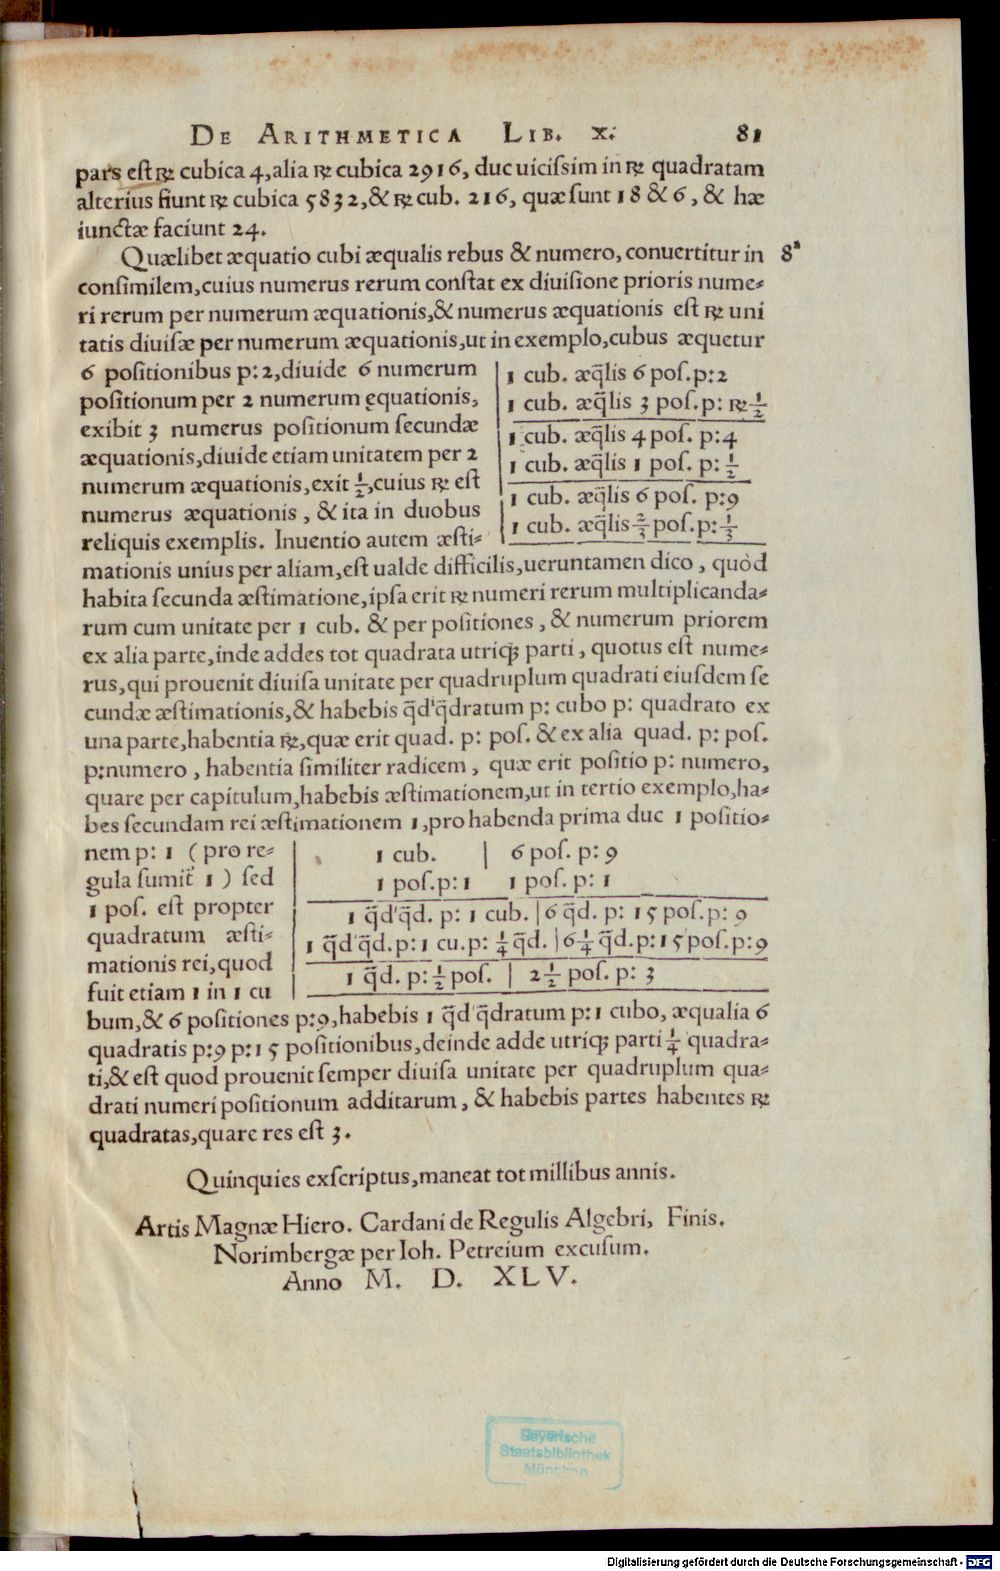 DE ARITHMETICA LIB. X. 81
pars est ℞ cubica 4, alia ℞ cubica 2916, duc uicissim in ℞ quadratam
alterius fiunt ℞ cubica 5832, & ℞ cub. 216, quæ sunt 18 & 6, & hæ
iunctæ faciunt 24.
Quælibet æquatio cubi æqualis rebus & numero, conuertitur in 8ª
consimilem, cuius numerus rerum constat ex diuisione prioris nume-
ri rerum per numerum æquationis, & numerus æquationis est ℞ uni
tatis diuisæ per numerum æquationis, ut in exemplo, cubus æquetur
6 positionibus p: 2, diuide 6 numerum
positionum per 2 numerum ęquationis,
exibit 3 numerus positionum secundæ
æquationis, diuide etiam unitatem per 2
numerum æquationis, exit 1/2, cuius ℞ est
numerus æquationis, & ita in duobus
reliquis exemplis. Inuentio autem æsti-
1 cub. æq̃lis 6 pos. p: 2
1 cub. æq̃lis 3 pos. p: ℞ 1/2
1 cub. æq̃lis 4 pos. p: 4
1 cub. æq̃lis 1 pos. p: 1/2
1 cub. æq̃lis 6 pos. p: 9
1 cub. æq̃lis 2/3 pos. p: 1/3
mationis unius per aliam, est ualde difficilis, ueruntamen dico, quòd
habita secunda æstimatione, ipsa erit ℞ numeri rerum multiplicanda-
rum cum unitate per 1 cub. & per positiones, & numerum priorem
ex alia parte, inde addes tot quadrata utriq; parti, quotus est nume-
rus, qui prouenit diuisa unitate per quadruplum quadrati eiusdem se
cundæ æstimationis, & habebis q̃d'q̃dratum p: cubo p: quadrato ex
una parte, habentia ℞, quæ erit quad. p: pos. & ex alia quad. p: pos.
p: numero, habentia similiter radicem, quæ erit positio p: numero,
quare per capitulum, habebis æstimationem, ut in tertio exemplo, ha-
bes secundam rei æstimationem 1, pro habenda prima duc 1 positio-
nem p: 1 (pro re-
gula sumit̃ 1) sed
1 pos. est propter
quadratum æsti-
mationis rei, quod
fuit etiam 1 in 1 cu
1 cub. | 6 pos. p: 9
1 pos. p: 1 1 pos. p: 1
1 q̃d'q̃d. p: 1 cub. | 6 q̃d. p: 15 pos. p: 9
1 q̃d'q̃d. p: 1 cu. p: 1/4 q̃d. | 6 1/4 q̃d. p: 15 pos. p: 9
1 q̃d. p: 1/2 pos. | 2 1/2 pos. p: 3
bum, & 6 positiones p: 9, habebis 1 q̃d'q̃dratum p: 1 cubo, æqualia 6
quadratis p: 9 p: 15 positionibus, deinde adde utriq; parti 1/4 quadra-
ti, & est quod prouenit semper diuisa unitate per quadruplum qua-
drati numeri positionum additarum, & habebis partes habentes ℞
quadratas, quare res est 3.
Quinquies exscriptus, maneat tot millibus annis.
Artis Magnæ Hiero. Cardani de Regulis Algebri, Finis.
Norimbergæ per Ioh. Petreium excusum.
Anno M. D. XLV.
Bayerische
Staatsbibliothek
München
Digitalisierung gefördert durch die Deutsche Forschungsgemeinschaft - DFG